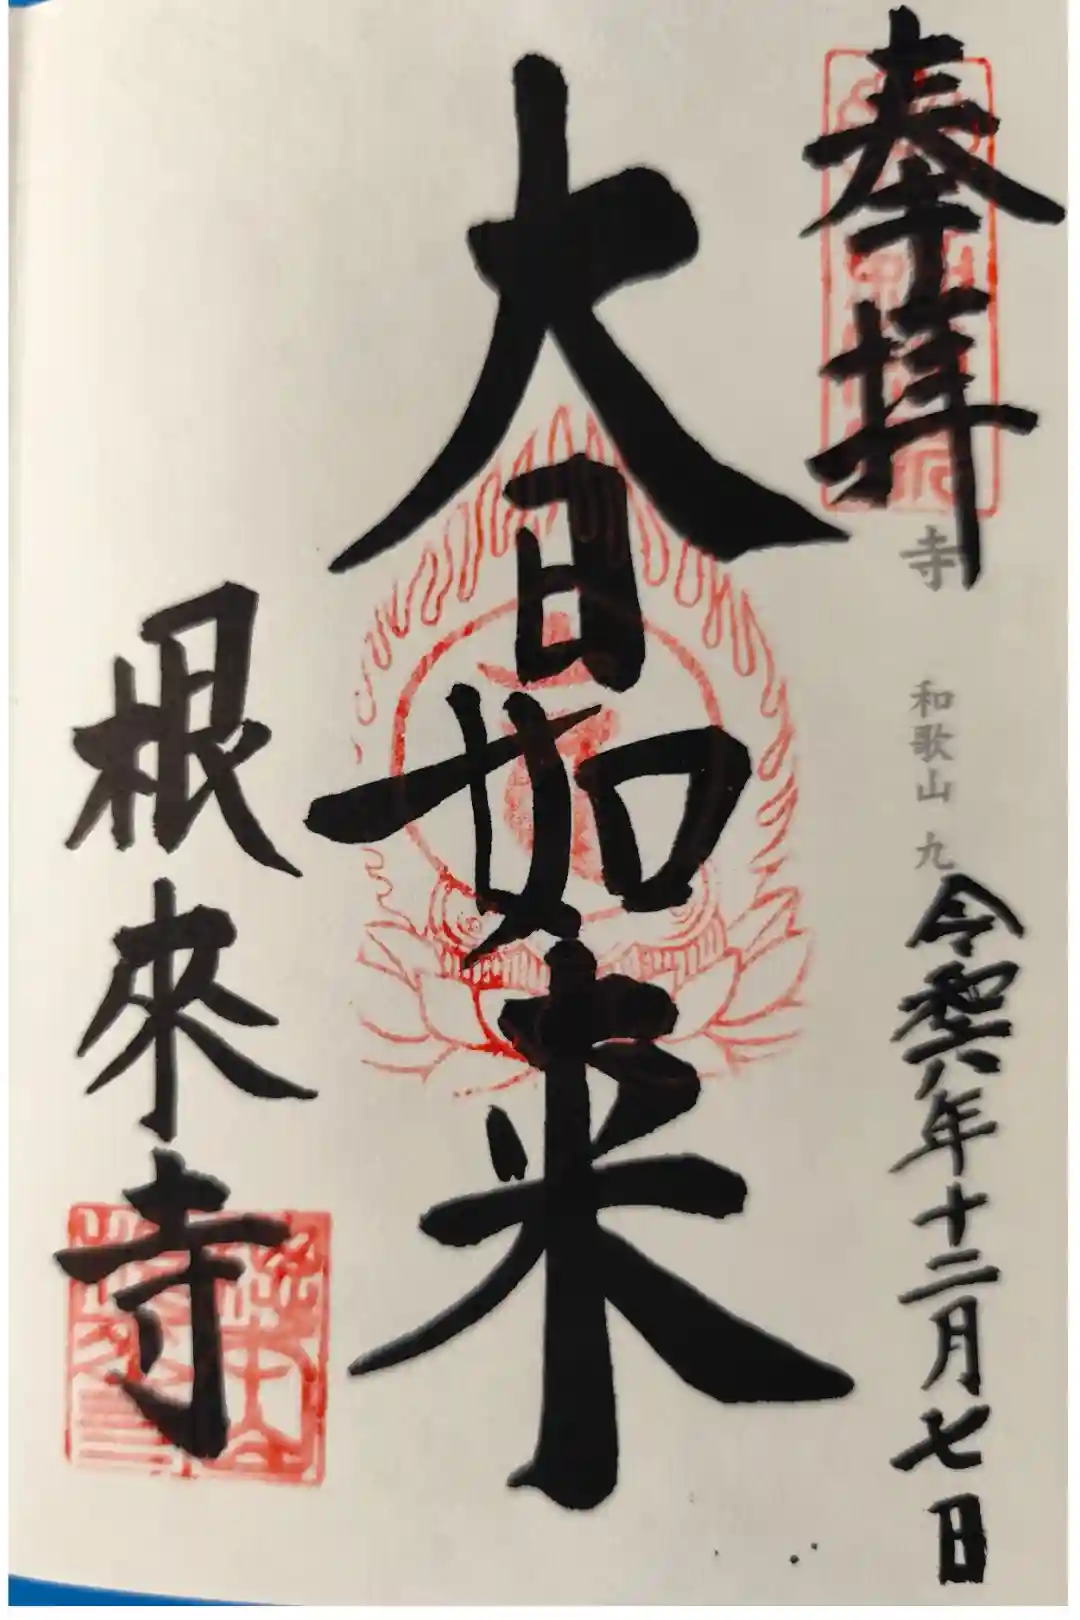 奉拝
寺 和歌山 九
令和六年十二月七日
大日如来
根來寺